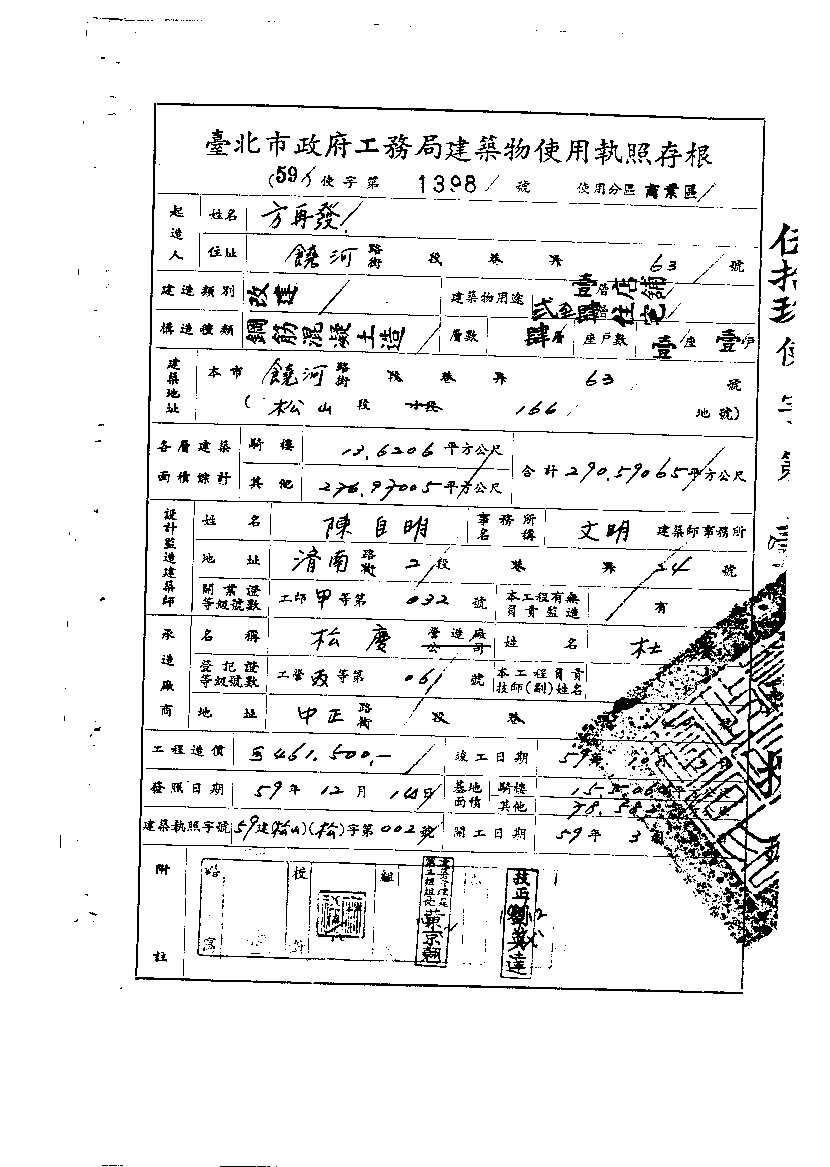 臺北市政府工務局建築物使用執照存根
(59)使字第 1398 號 使用分區 商業區
起造人 姓名 方再發
住址 饒河 路街 段 巷 弄 63 號
建造類別 改建 建築物用途 壹層店舖 貳至肆層住宅
構造種類 鋼筋混凝土造 層數 肆層 座戶數 壹座 壹戶
建築地址 本市 饒河 路街 段 巷 弄 63 號
(松山段 小段 166 地號)
各層建築面積總計 騎樓 13.6206 平方公尺 合計 290.59065 平方公尺
其他 276.97005 平方公尺
設計監造建築師 姓名 陳自明 事務所名稱 文明 建築師事務所
地址 濟南 路街 2段 巷 弄 24 號
開業證等級號數 工師甲等第 032 號 本工程有無員責監造 有
承造廠商 名稱 松慶 營造廠公司 姓名 杜
登記證等級號數 工營丙等第 061 號 本工程員責技師(副)姓名
地址 中正 路街 段 巷
工程造價 461,500.- 竣工日期 59年10月
發照日期 59年12月14日 基地面積 騎樓
其他
建築執照字號 59建(松山)(松)字第002號 開工日期 59年3
附註
技正劉英達
伍拾玖使字第